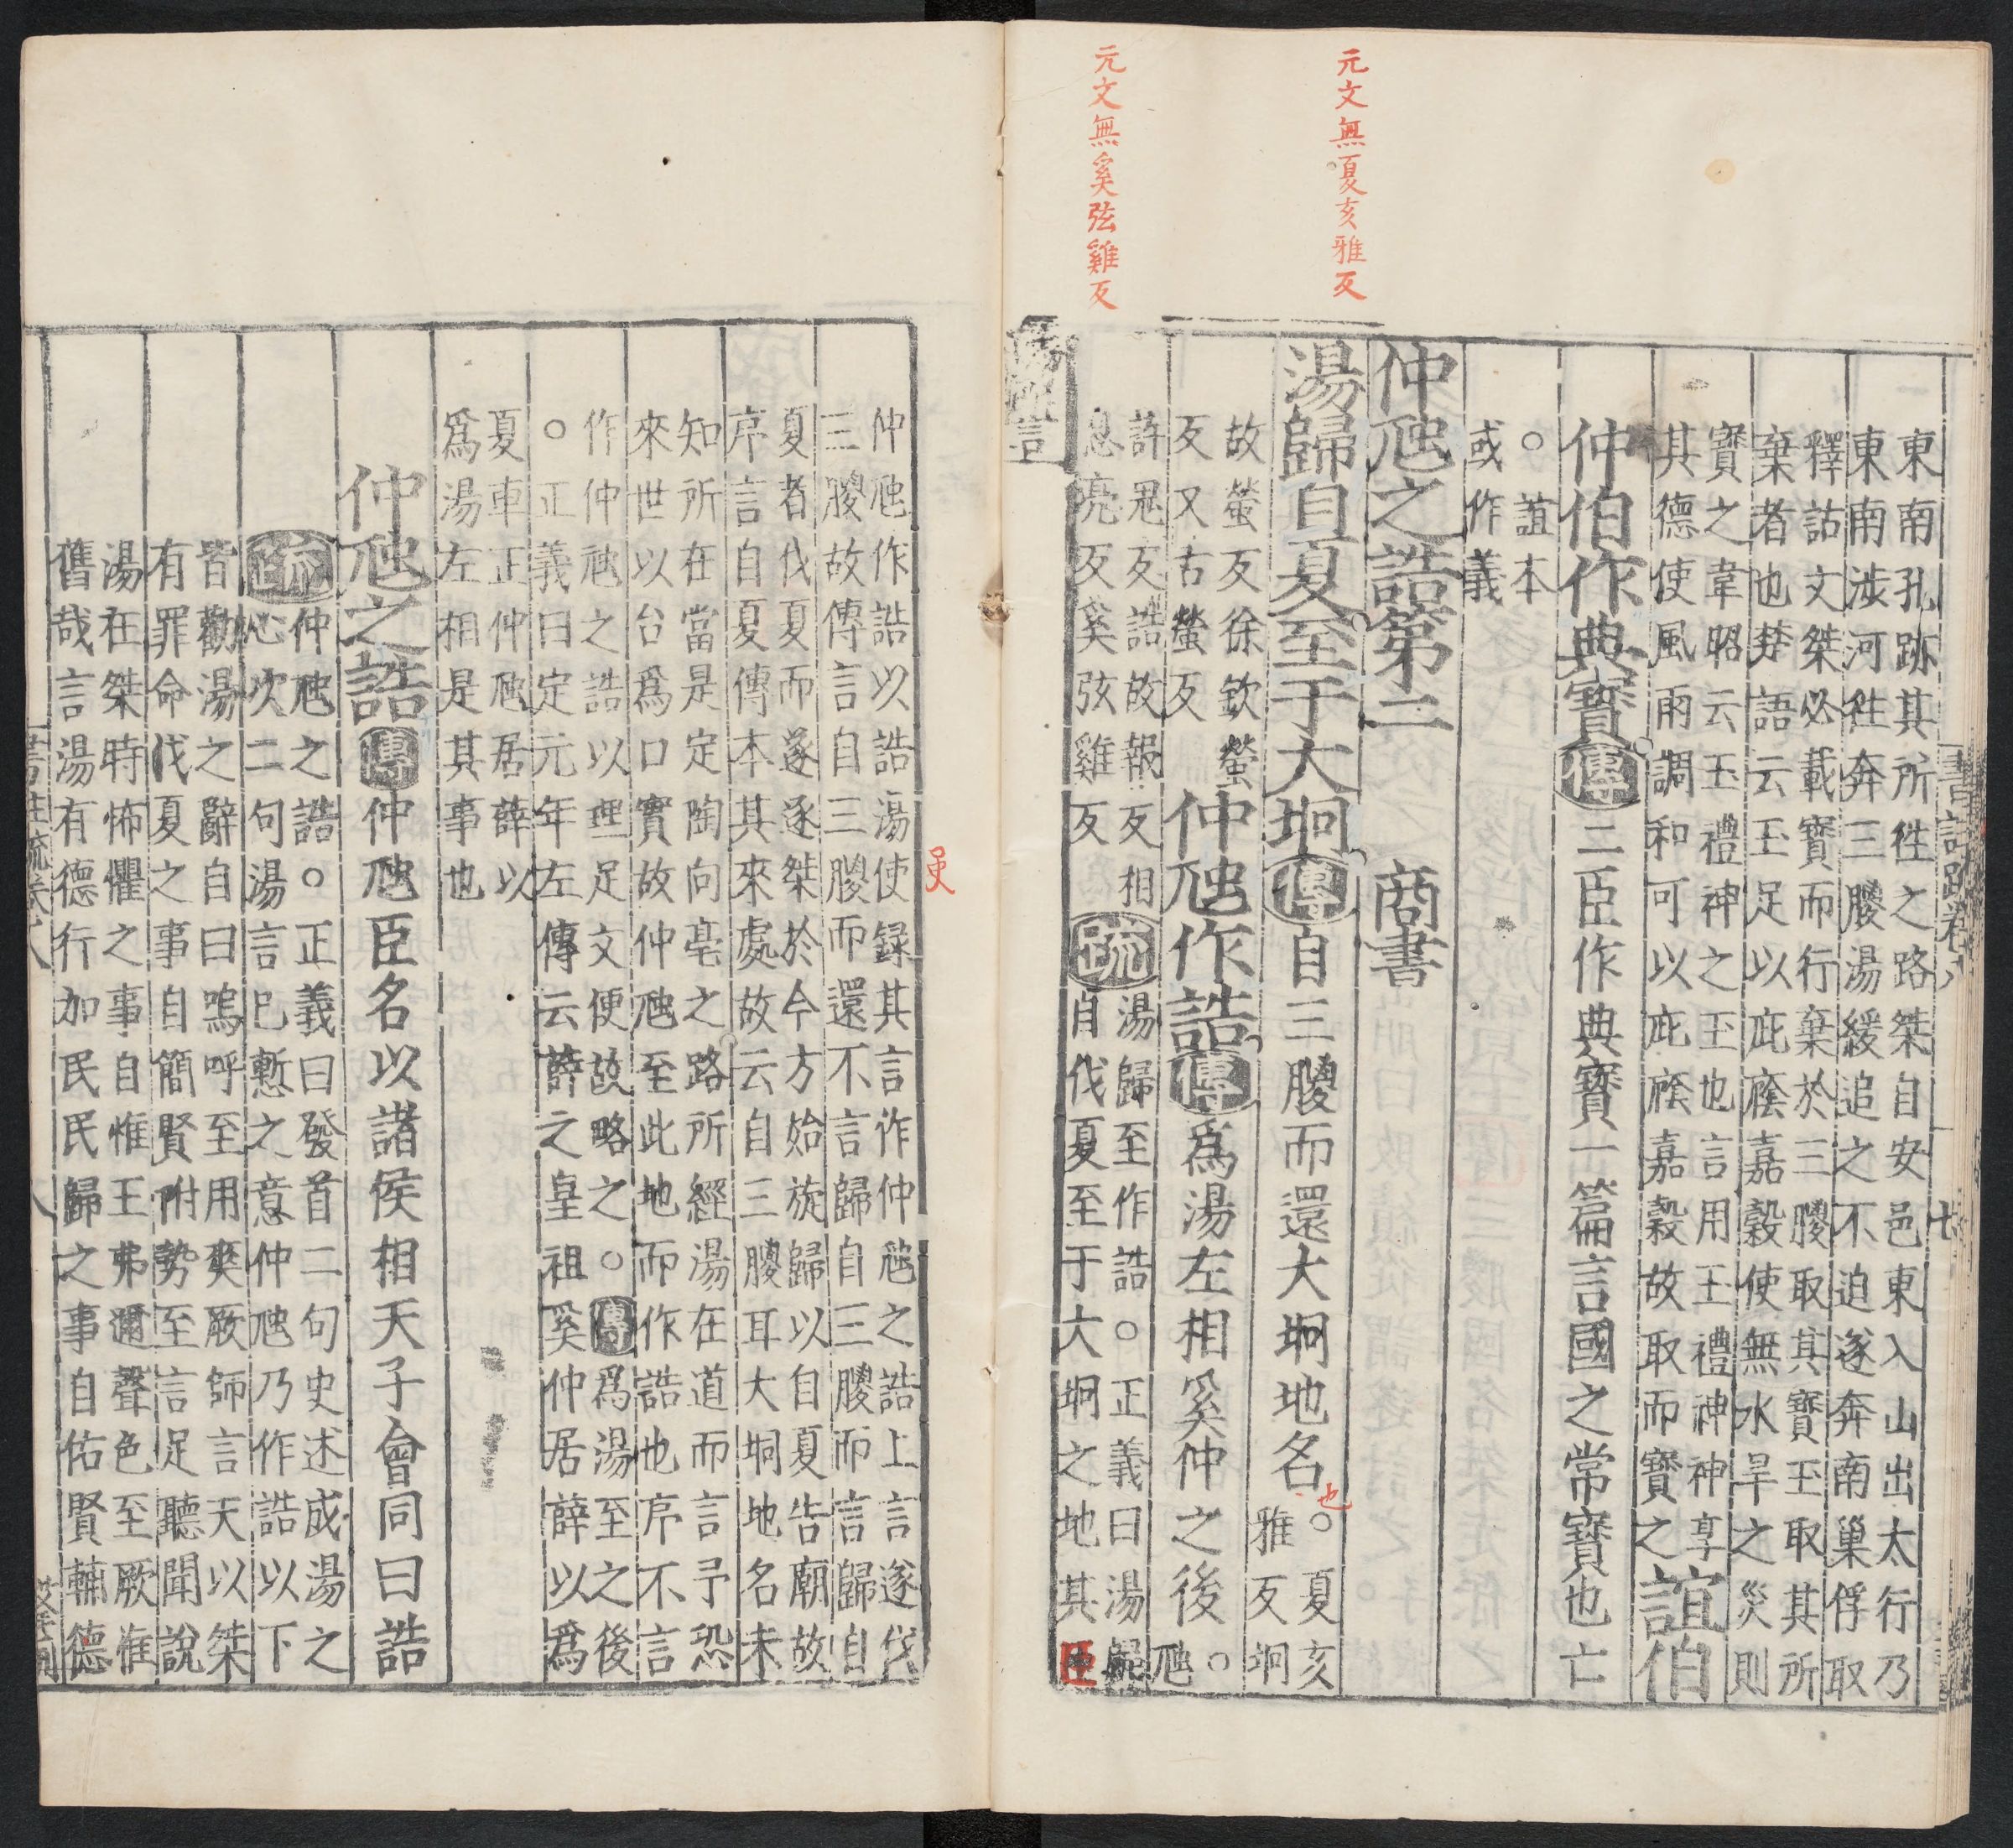 元文無夏亥雅反
元文無奚弦雞反
書註疏卷八
七
東南孔跡其所往之路桀自安邑東入山出太行乃
東南涉河往奔三朡湯緩追之不迫遂奔南巢俘取
釋詁文桀必載寳而行棄於三朡取其寳玉取其所
棄者也楚語云玉足以庇廕嘉穀使無水旱之災則
寳之韋昭云玉禮神之玉也言用玉禮神神享
其德使風雨調和可以庇廕嘉穀故取而寳之
誼伯
仲伯作典寳傳二臣作典寳一篇言國之常寳也亡
○誼本
或作義
仲虺之誥第二 商書
湯歸自夏至于大坰傳自三朡而還大坰地名也○夏亥
雅反坰
故螢反徐欽螢
反又古螢反
仲虺作誥傳爲湯左相奚仲之後○虺
許鬼反誥故報反相
息亮反奚弦雞反
疏湯歸至作誥○正義曰湯歸
自伐夏至于大坰之地其臣
仲虺作誥以誥湯使録其言作仲虺之誥上言遂伐
三朡故傳言自三朡而還不言歸自三朡而言歸自
夏者伐夏而遂逐桀於今方始旋歸以自夏告廟故
序言自夏傳本其來處故云自三朡耳大坰地名未
知所在當是定陶向亳之路所經湯在道而言予恐
來世以台爲口實故仲虺至此地而作誥也序不言
作仲虺之誥以理足文便故略之○傳爲湯至之後
○正義曰定元年左傳云薛之皇祖奚仲居薛以爲
夏車正仲虺居薛以
爲湯左相是其事也
吳
仲虺之誥傳仲虺臣名以諸侯相天子會同曰誥
疏仲虺之誥○正義曰發首二句史述成湯之
心次二句湯言已慙之意仲虺乃作誥以下
皆勸湯之辭自曰嗚呼至用爽厥師言天以桀
有罪命伐夏之事自簡賢附勢至言足聽聞說
湯在桀時怖懼之事自惟王弗邇聲色至厥惟
舊哉言湯有德行加民民歸之事自佑賢輔德
書註疏卷八
八